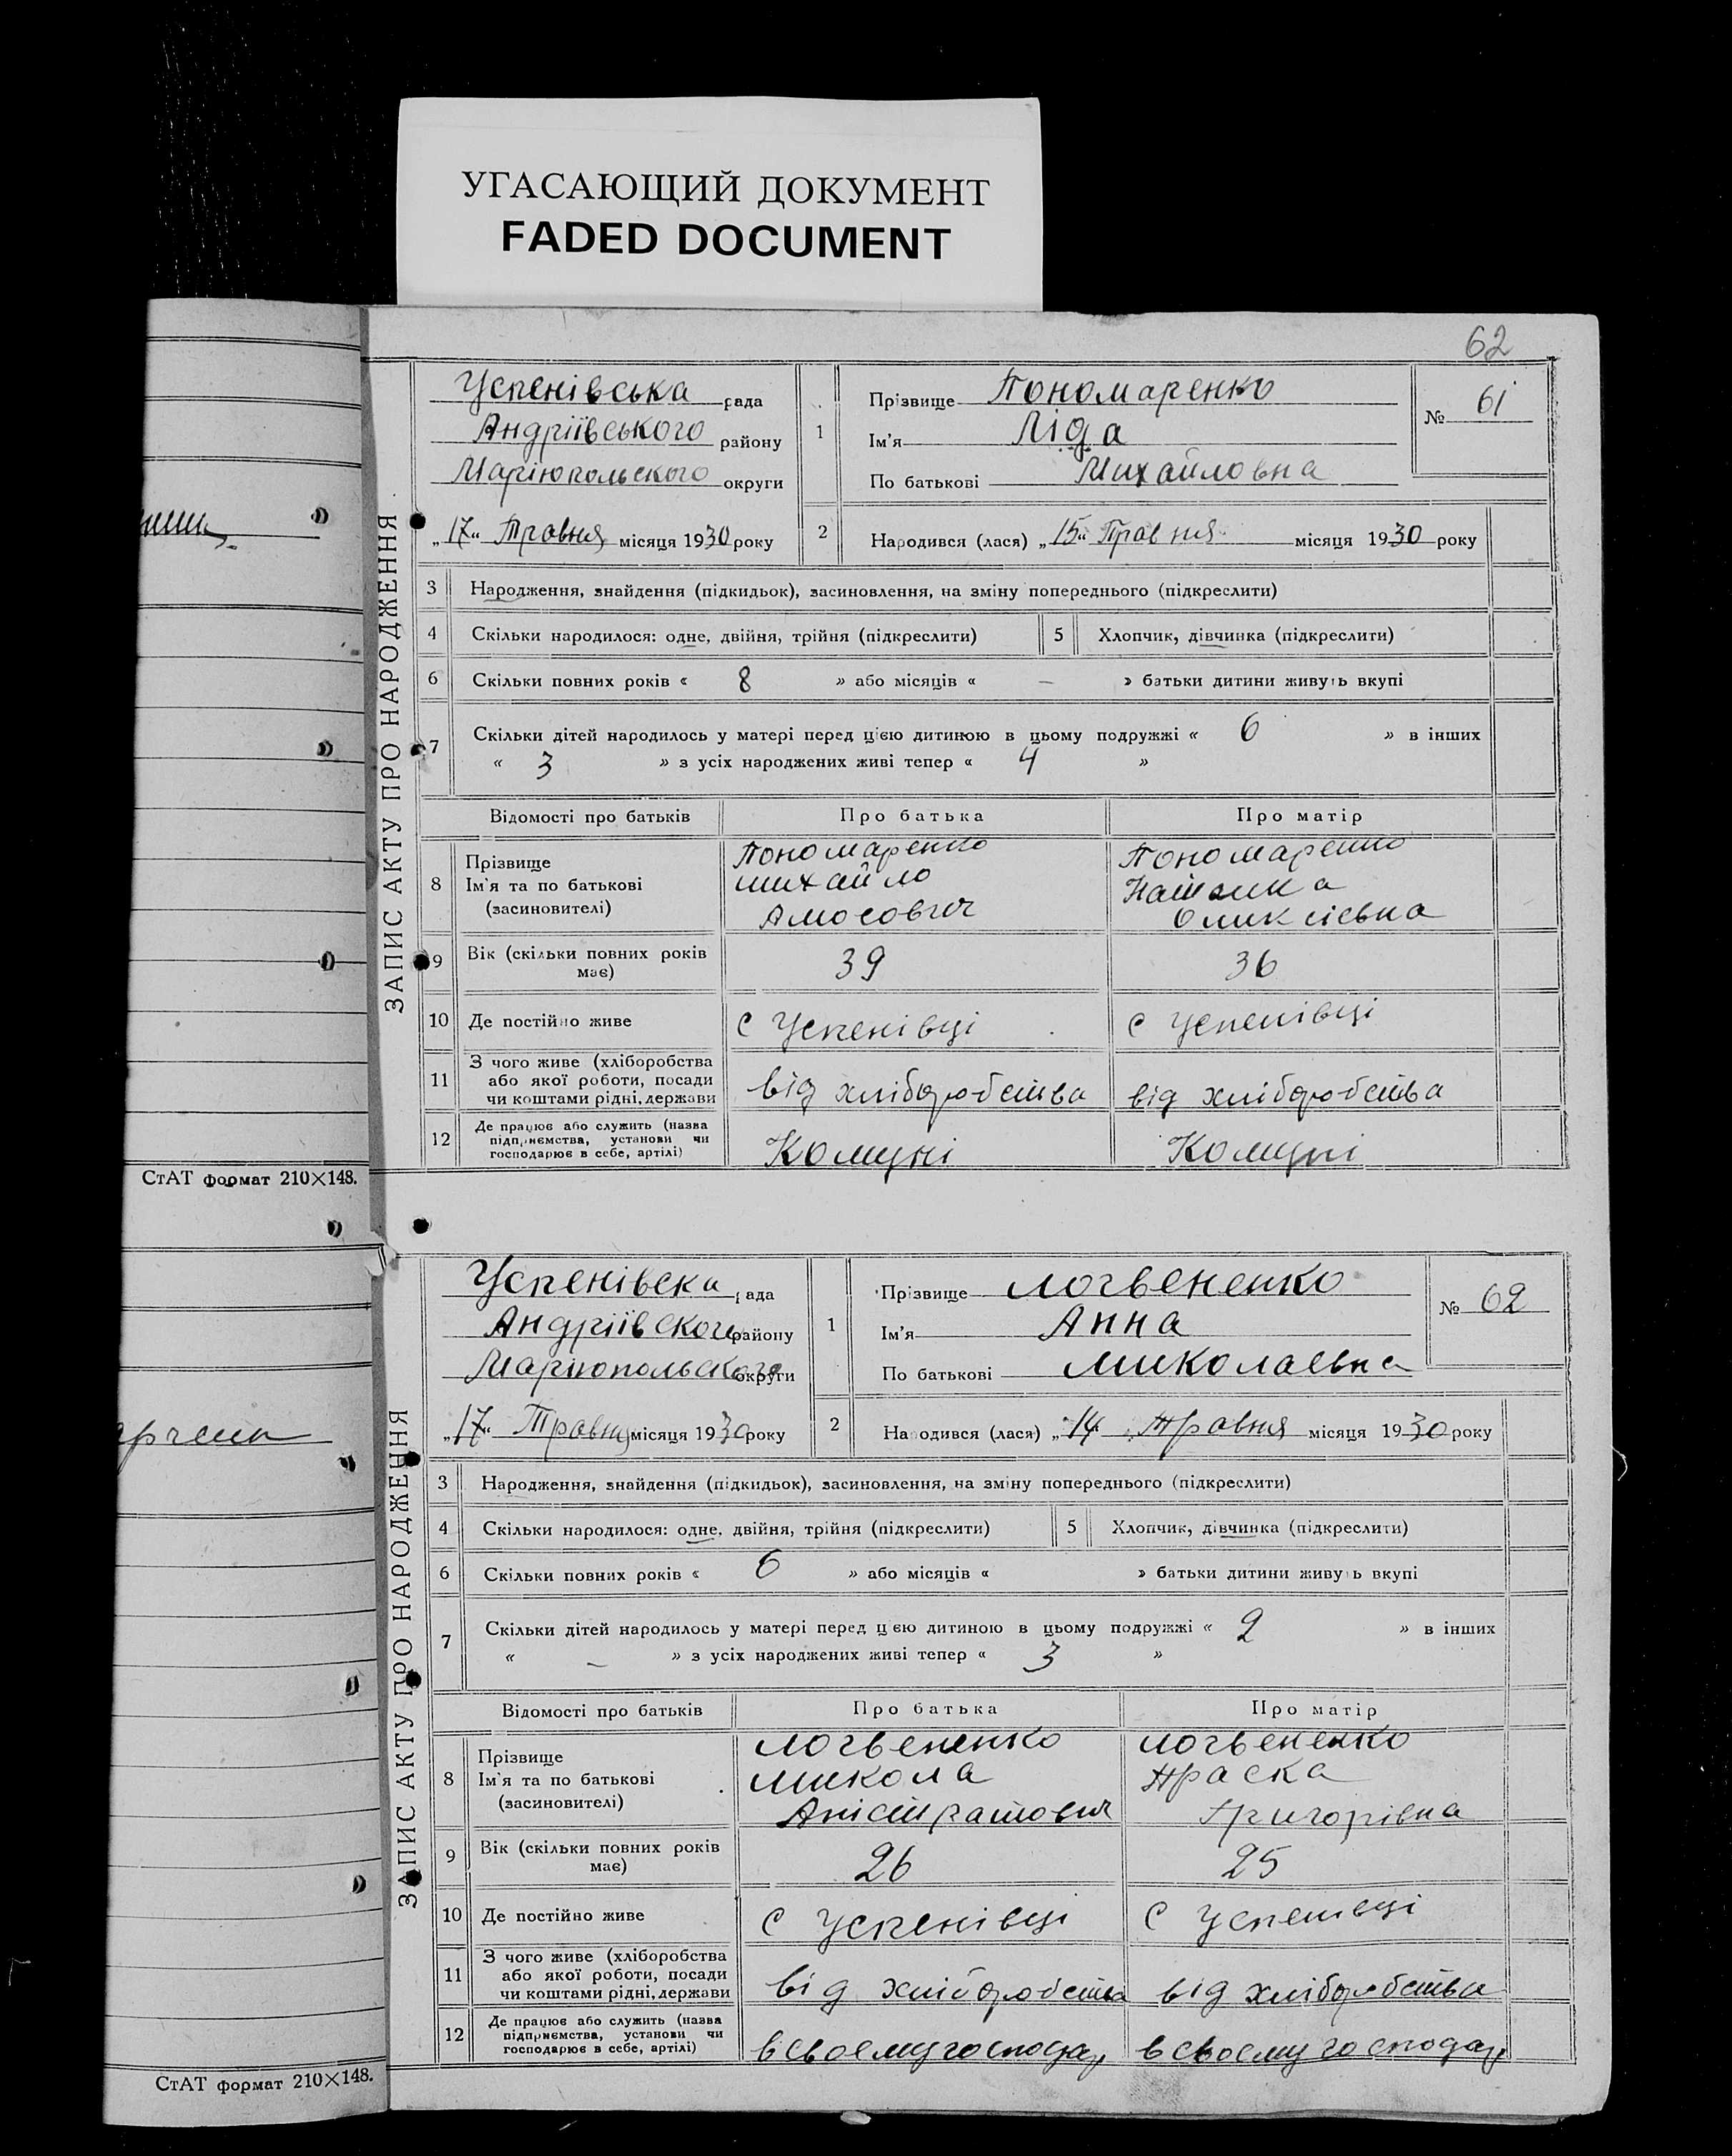 УГАСАЮЩИЙ ДОКУМЕНТ
FADED DOCUMENT
62
ЗАПИС АКТУ ПРО НАРОДЖЕННЯ
Успенівська рада
Андріївського району
Маріюпольского округи
„17“ Травня місяця 1930 року
1 Прізвище Пономаренко
Ім'я Ліда
По батькові Михайловна
№ 61
2 Народився (лася) „15“ Травня місяця 1930 року
3 Народження, знайдення (підкидьок), засиновлення, на зміну попереднього (підкреслити)
4 Скільки народилося: одне, двійня, трійня (підкреслити) 5 Хлопчик, дівчинка (підкреслити)
6 Скільки повних років « 8 » або місяців « — » батьки дитини живуть вкупі
7 Скільки дітей народилось у матері перед цією дитиною в цьому подружжі « 6 » в інших
« 3 » з усіх народжених живі тепер « 4 »
Відомості про батьків Про батька Про матір
8 Прізвище Пономаренко Пономаренко
Ім'я та по батькові Михайло
(засиновителі) Амосович
9 Вік (скільки повних років має) 39 36
10 Де постійно живе с Успенівці с Успенівці
11 З чого живе (хліборобства
або якої роботи, посади
чи коштами рідні, держави від хліборобства від хліборобства
12 Де працює або служить (назва
підприємства, установи чи
господарює в себе, артілі) Комуні Комуні
СтАТ формат 210×148.
ЗАПИС АКТУ ПРО НАРОДЖЕННЯ
Успенівска рада
Андріївского району
Маріюпольского округи
„17“ Травня місяця 1930 року
1 Прізвище Логвененко
Ім'я Анна
По батькові Миколаевна
№ 62
2 Народився (лася) „14“ Травня місяця 1930 року
3 Народження, знайдення (підкидьок), засиновлення, на зміну попереднього (підкреслити)
4 Скільки народилося: одне, двійня, трійня (підкреслити) 5 Хлопчик, дівчинка (підкреслити)
6 Скільки повних років « 6 » або місяців « » батьки дитини живуть вкупі
7 Скільки дітей народилось у матері перед цією дитиною в цьому подружжі « 2 » в інших
« — » з усіх народжених живі тепер « 3 »
Відомості про батьків Про батька Про матір
8 Прізвище Логвененко Логвененко
Ім'я та по батькові Микола
(засиновителі) Григорівна
9 Вік (скільки повних років має) 26 25
10 Де постійно живе с Успенівці с Успенівці
11 З чого живе (хліборобства
або якої роботи, посади
чи коштами рідні, держави від хліборобства від хліборобства
12 Де працює або служить (назва
підприємства, установи чи
господарює в себе, артілі) в своему господар в своему господар
СтАТ формат 210×148.